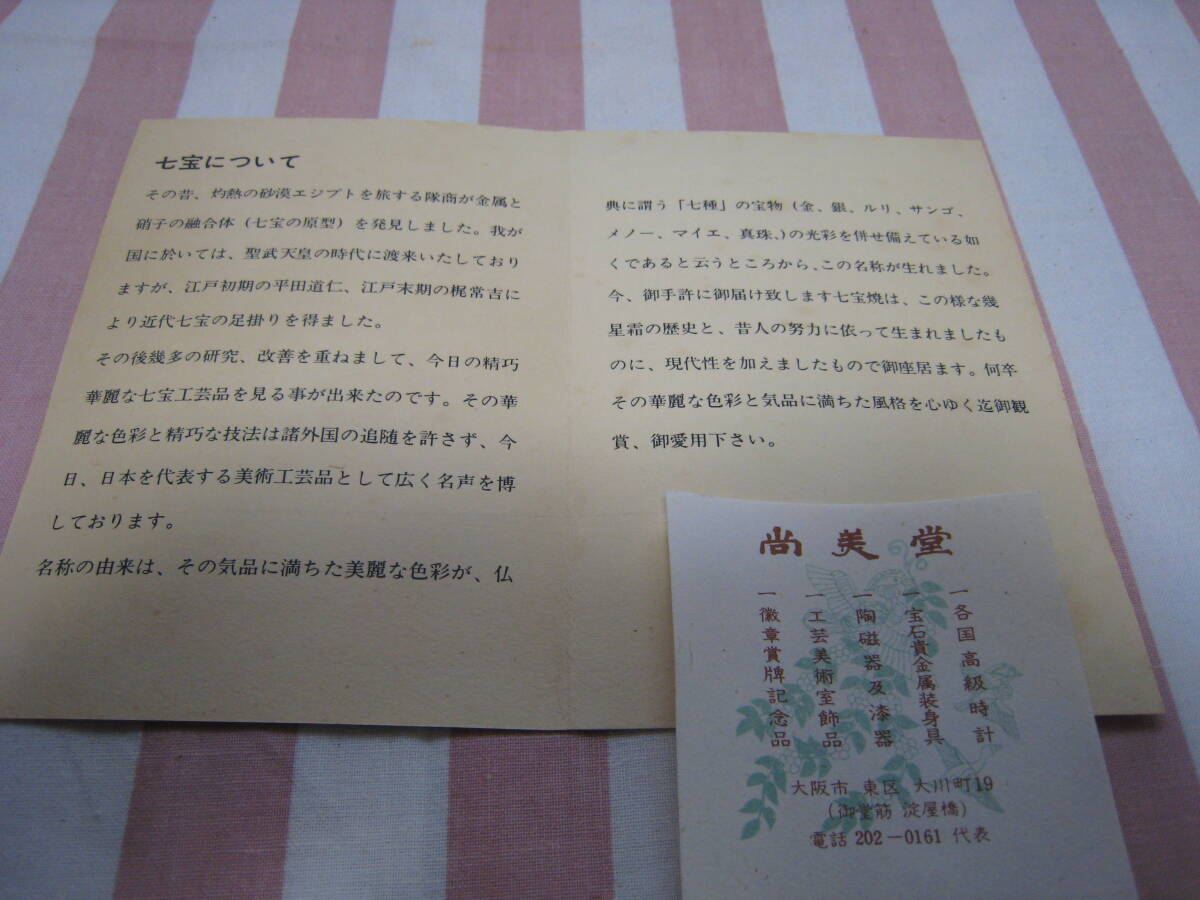 七宝について
その昔、灼熱の砂漠エジプトを旅する隊商が金属と
硝子の融合体（七宝の原型）を発見しました。我が
国に於いては、聖武天皇の時代に渡来いたしており
ますが、江戸初期の平田道仁、江戸末期の梶常吉に
より近代七宝の足掛りを得ました。
その後幾多の研究、改善を重ねまして、今日の精巧
華麗な七宝工芸品を見る事が出来たのです。その華
麗な色彩と精巧な技法は諸外国の追随を許さず、今
日、日本を代表する美術工芸品として広く名声を博
しております。
名称の由来は、その気品に満ちた美麗な色彩が、仏
典に謂う「七種」の宝物（金、銀、ルリ、サンゴ、
メノー、マイエ、真珠、）の光彩を併せ備えている如
くであると云うところから、この名称が生れました。
今、御手許に御届け致します七宝焼は、この様な幾
星霜の歴史と、昔人の努力に依って生まれましたも
のに、現代性を加えましたもので御座居ます。何卒
その華麗な色彩と気品に満ちた風格を心ゆく迄御観
賞、御愛用下さい。
尚美堂
一各国高級時計
一宝石貴金属装身具
一陶磁器及漆器
一工芸美術室飾品
一徽章賞牌記念品
大阪市 東区 大川町19
（御堂筋 淀屋橋）
電話 202－0161 代表